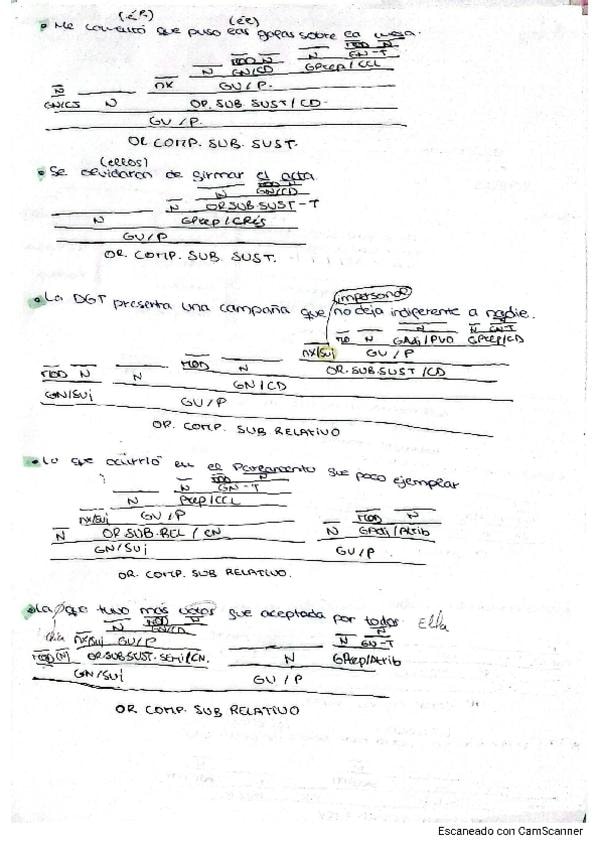 (él) (él)
• Me comentó que puso las gafas sobre la mesa.
MOD N
MOD N N GN-T
N N GN/CD GPrep/CCL
N nx GU/P.
GN/CI N OR. SUB. SUST/CD.
GU/P.
OR COMP. SUB. SUST.
(ellos)
• Se olvidaron de firmar el acta
MOD N
N GN/CD
N OR SUB. SUST-T
N GPrep/CRég
GU/P
OR. COMP. SUB SUST.
impersonal
• La DGT presenta una campaña que no deja indiferente a nadie.
N N
MOD N GAdj/PVO GPrep/CD
N GN-T
MOD nx/Suj GU/P
MOD N N OR. SUB. SUST/CD
GN/CD
GN/Suj GU/P
OR. COMP. SUB RELATIVO
• Lo que ocurrió en el Parlamento fue poco ejemplar
MOD N
N GN-T
N Prep/CCL
nx/Suj GU/P MOD N
N OR SUB. REL / CN N GAdj/Atrib
GN/Suj GU/P.
OR. COMP. SUB RELATIVO.
• La que tuvo más votos fue aceptada por todos Ella
N MOD N N
GN/CD N GN-T
nx/Suj GU/P
MOD (N) OR SUB SUST. SEMI/CN. N GPrep/Atrib
GN/Suj GU/P
OR COMP. SUB RELATIVO
Escaneado con CamScanner